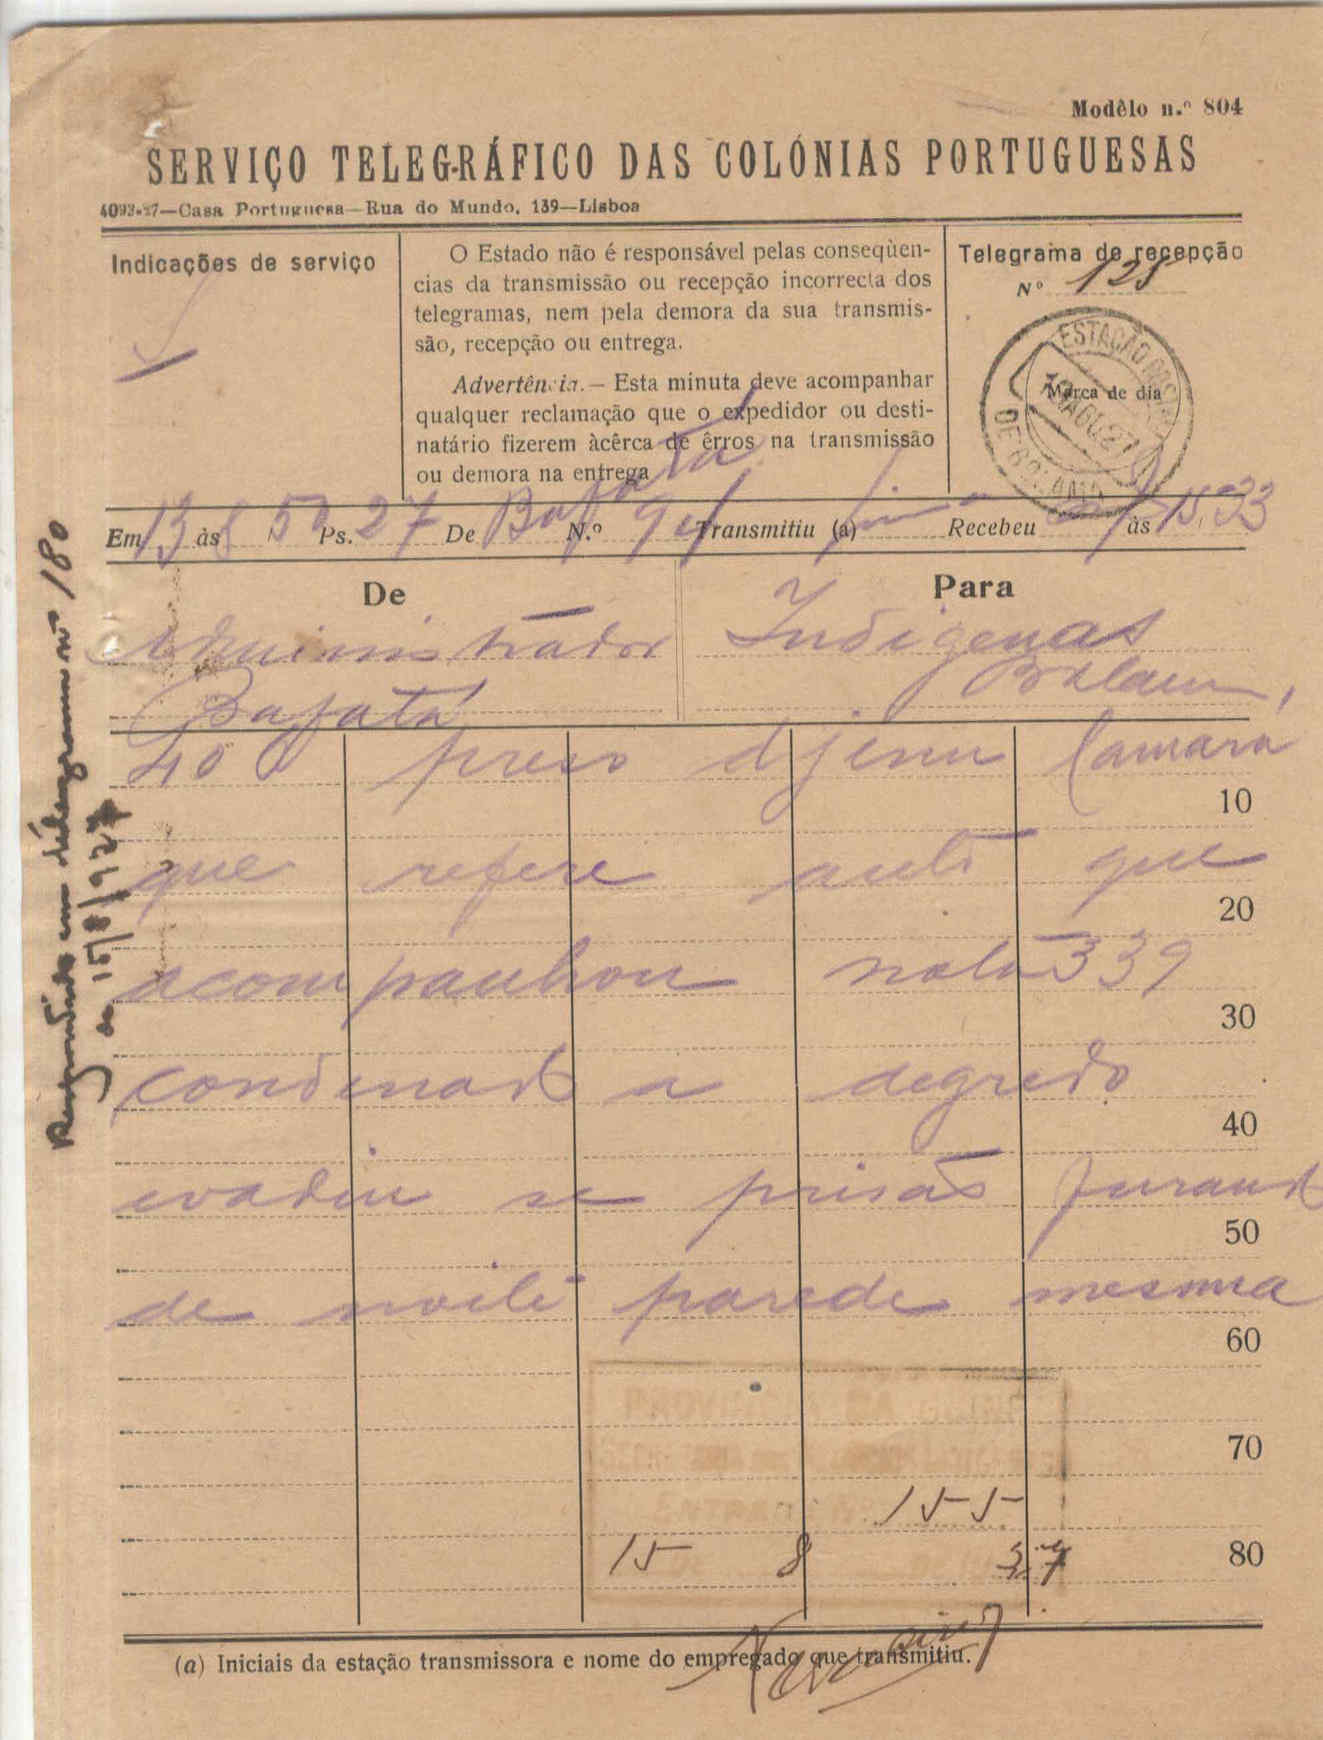 Modêlo n.º 804
SERVIÇO TELEGRÁFICO DAS COLÓNIAS PORTUGUESAS
4093-27—Casa Portuguesa—Rua do Mundo, 139—Lisboa
Indicações de serviço
O Estado não é responsável pelas conseqüen-
cias da transmissão ou recepção incorrecta dos
telegramas, nem pela demora da sua transmis-
são, recepção ou entrega.
Advertência.— Esta minuta deve acompanhar
qualquer reclamação que o expedidor ou desti-
natário fizerem àcêrca de êrros na transmissão
ou demora na entrega
Telegrama de recepção
Nº 128
ESTAÇÃO
Marca de dia
AGO 27
DE BOLAMA
Em 13 às 50 Ps. 27 De Bafatá N.º Transmitiu (a) Recebeu às 15,33
De
Administrador
Bafatá
Para
Indigenas
Bolama
40 preso djenu Camará
10
que refere auto que
20
acompanhou nota 339
30
condenado a degredo
40
evadiu se prisão furando
50
de noite parede mesma
60
70
PROVINCIA DA GUINÉ
ENTRADA
155
15 8 27
80
(a) Iniciais da estação transmissora e nome do empregado que transmitiu.
Respondido em telegrama nº 180
de 15/8/927